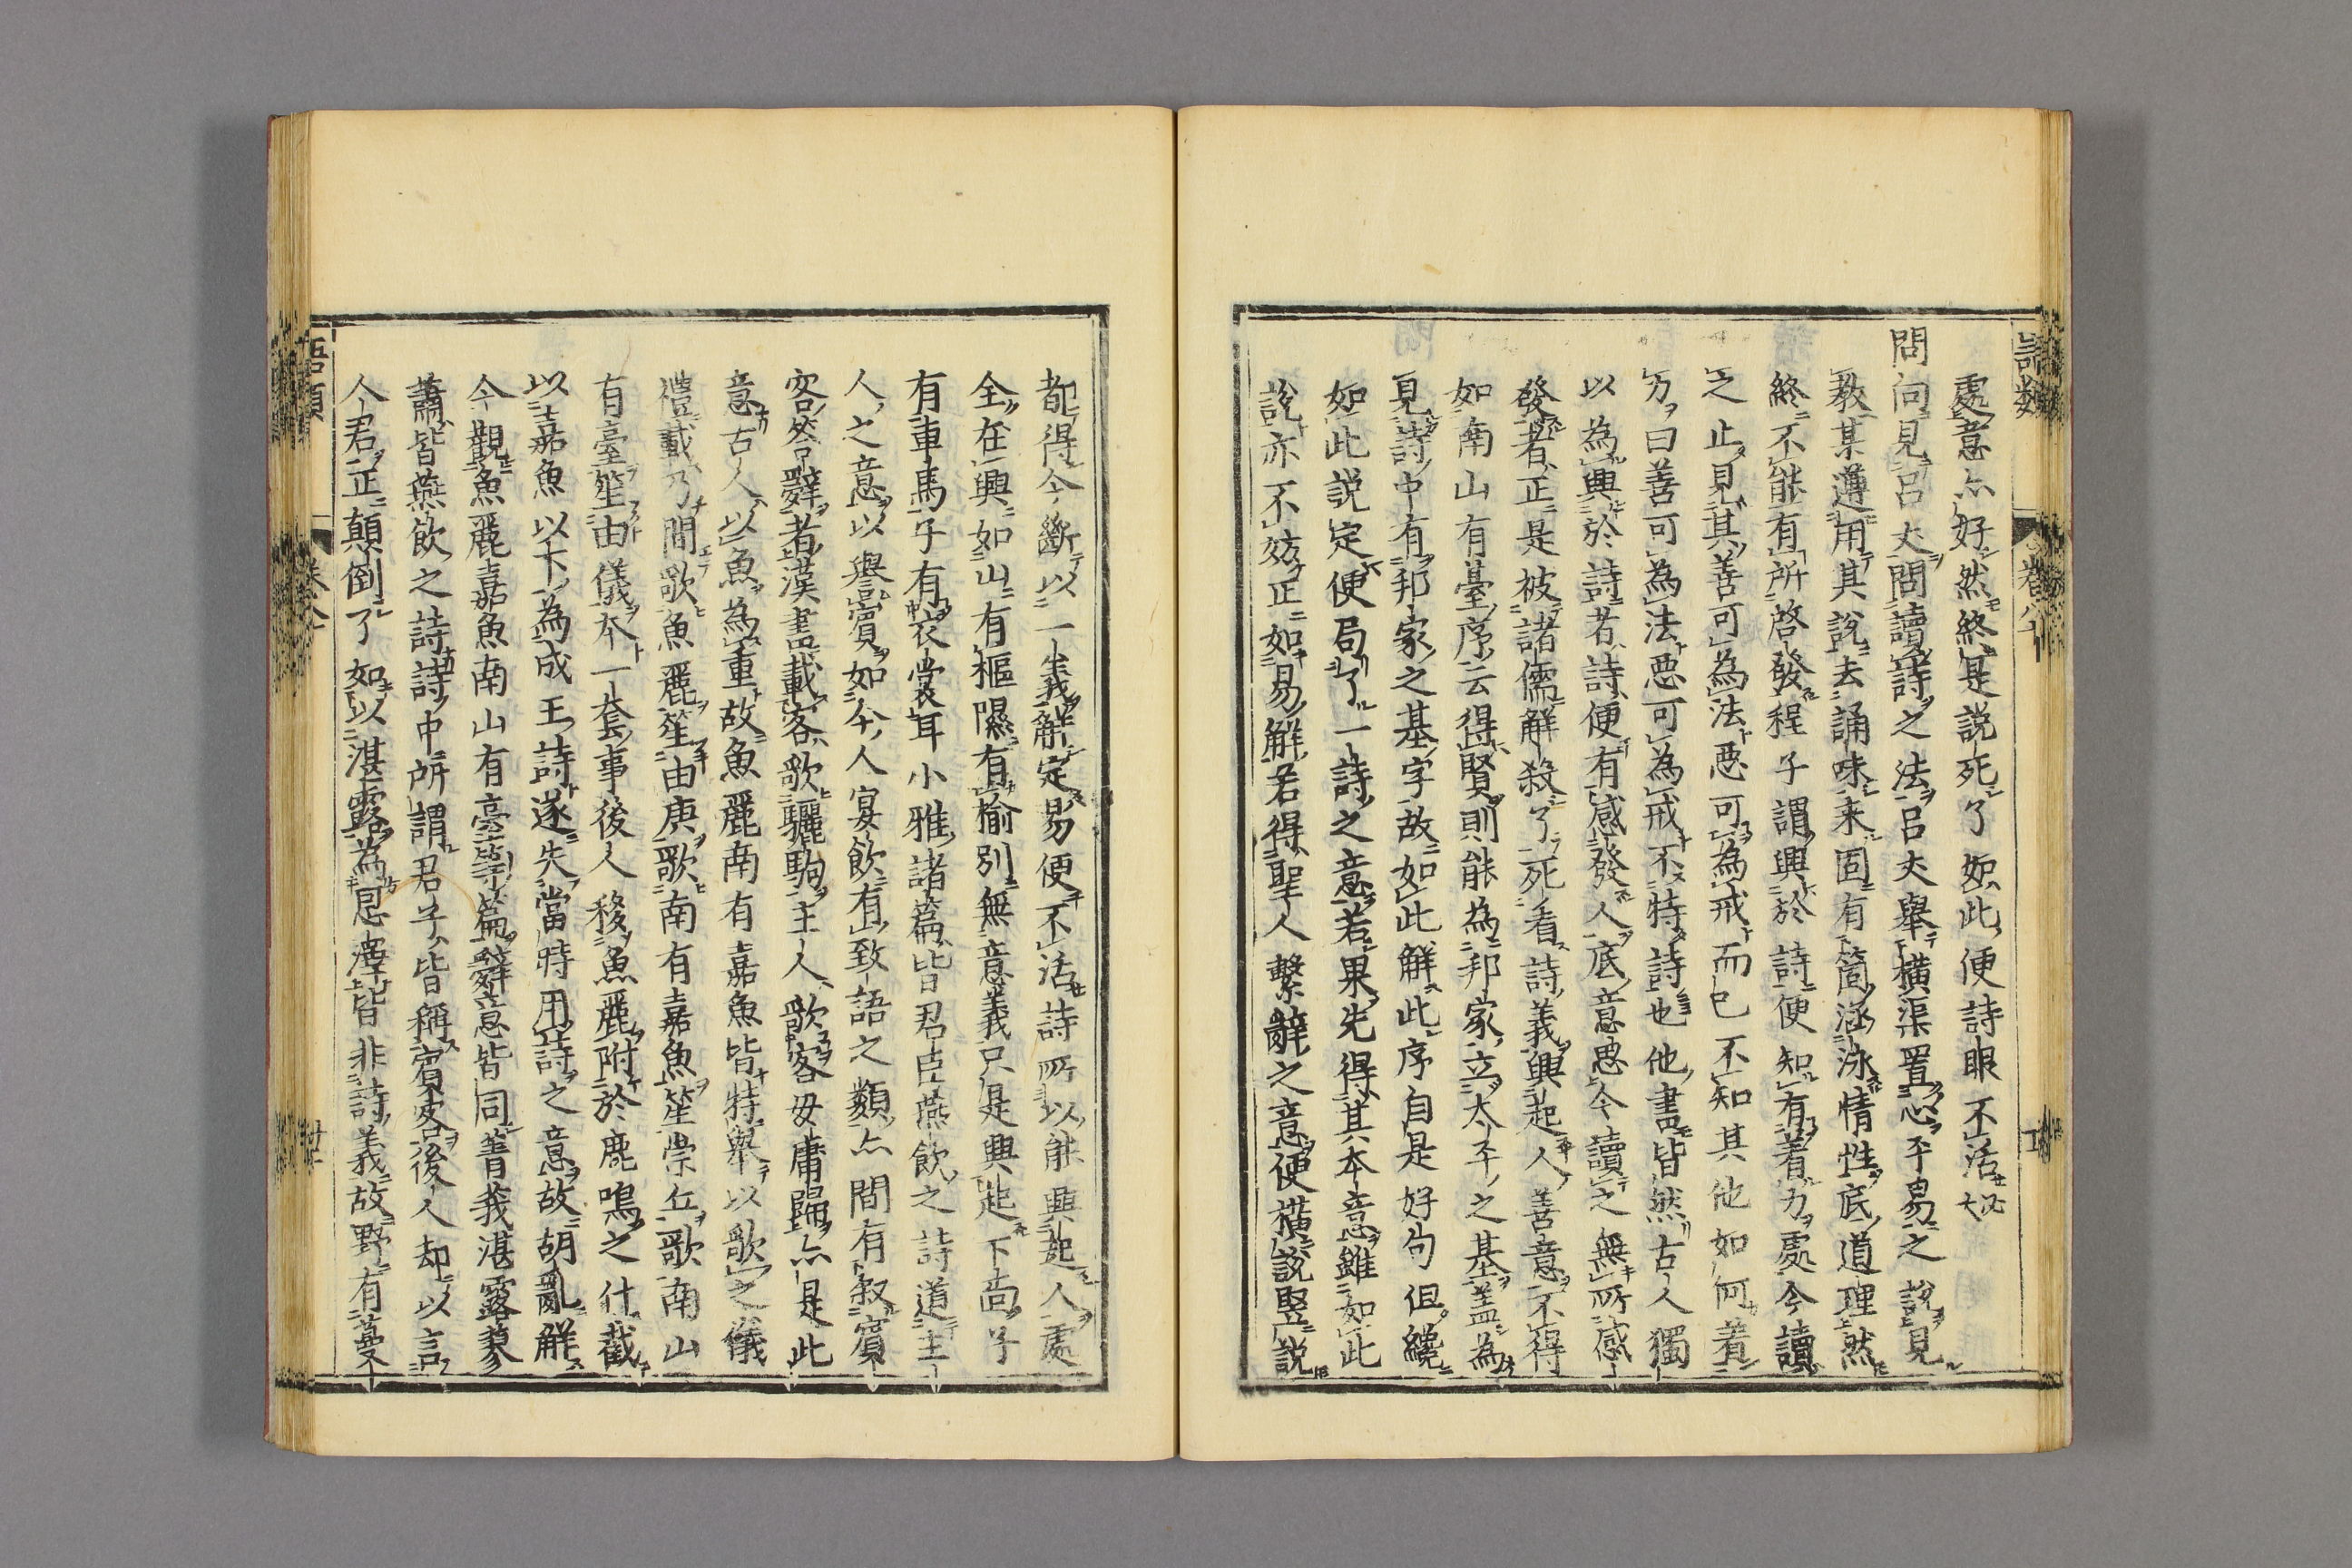 處意亦好然終是説死了如此便詩眼不活 必大
問向見呂丈問讀詩之法呂丈舉橫渠置心平易之說見
教某遵用其說去誦味來固有箇涵泳情性底道理然
終不能有所啓發程子謂興於詩便知有着力處今讀
之止見其善可為法惡可為戒而已不知其他如何着
力曰善可為法惡可為戒不特詩也他書皆然古人獨
以為興於詩者詩便有感發人底意思今讀之無所感
發者正是被諸儒解殺了死看詩義興起人善意不得
如南山有臺序云得賢則能為邦家立太平之基蓋為
見詩中有邦家之基字故如此解此序自是好句但纔
如此說定便局了一詩之意若果先得其本意雖如此
說亦不妨正如易解若得聖人繫辭之意便橫說竪說
都得今斷以一義解定易便不活詩所以能興起人處
全在興如山有樞隰有榆別無意義只是興起下面子
有車馬子有衣裳耳小雅諸篇皆君臣燕飲之詩道主
人之意以譽賓如今人宴飲有致語之類亦間有叙賓
客答辭者漢書載客歌驪駒主人歌客毋庸歸亦是此
意古人以魚為重故魚麗南有嘉魚皆特舉以歌之儀
禮載乃間歌魚麗笙由庚歌南有嘉魚笙崇丘歌南山
有臺笙由儀本一套事後人移魚麗附於鹿鳴之什截
以嘉魚以下為成王詩遂失當時用詩之意故胡亂解
今觀魚麗嘉魚南山有臺等篇辭意皆同菁莪湛露蓼
蕭皆燕飲之詩詩中所謂君子皆稱賓客後人却以言
人君正顛倒了如以湛露為恩澤皆非詩義故野有蔓
語類
卷八十